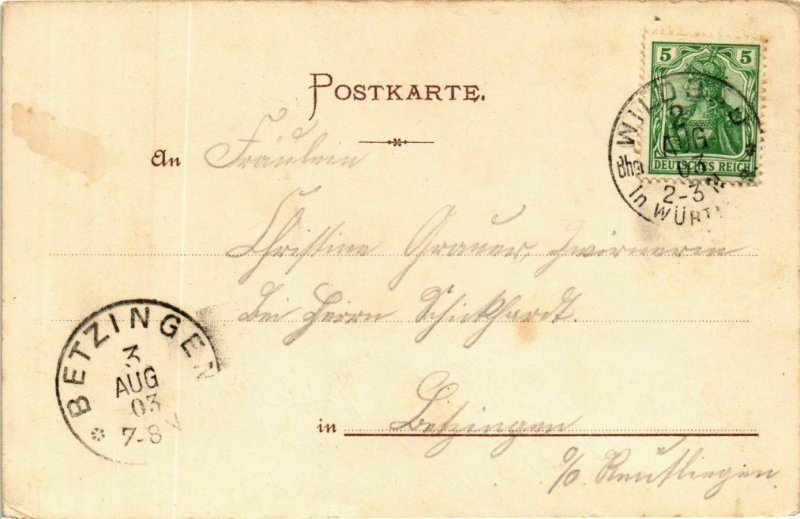 POSTKARTE.
5 5
DEUTSCHES REICH
WILDBAD
2
AUG
03
2-3N
Bhf
In WÜRTT.
An Fräulein
Christine Grauer, Zwirnerin
bei Herrn Schickhardt.
BETZINGEN
3
AUG
03
7-8 V
in Betzingen
o/o Reutliegen.